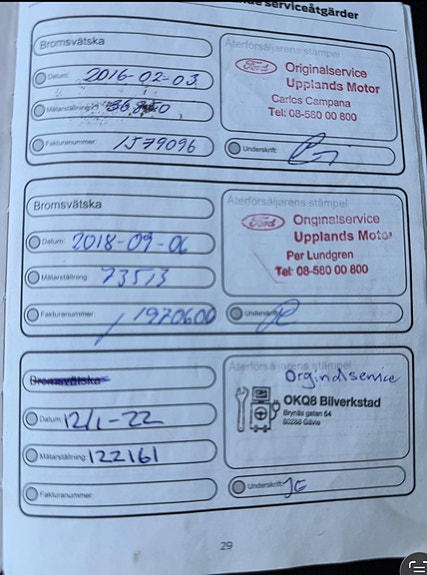 serviceåtgärder
Bromsvätska
Datum: 2016-02-03
Mätarställning:
Fakturanummer: 1579096
Återförsäljarens stämpel
Ford Originalservice
Upplands Motor
Carlos Campana
Tel: 08-580 00 800
Underskrift:
Bromsvätska
Datum: 2018-09-06
Mätarställning: 73513
Fakturanummer: 1970600
Återförsäljarens stämpel
Ford Originalservice
Upplands Motor
Per Lundgren
Tel: 08-580 00 800
Underskrift:
Bromsvätska
Datum: 12/1-22
Mätarställning: 122161
Fakturanummer:
Återförsäljarens stämpel
Orginalservice
OKQ8 Bilverkstad
Brynäs gatan 54
Gävle
Underskrift:
29